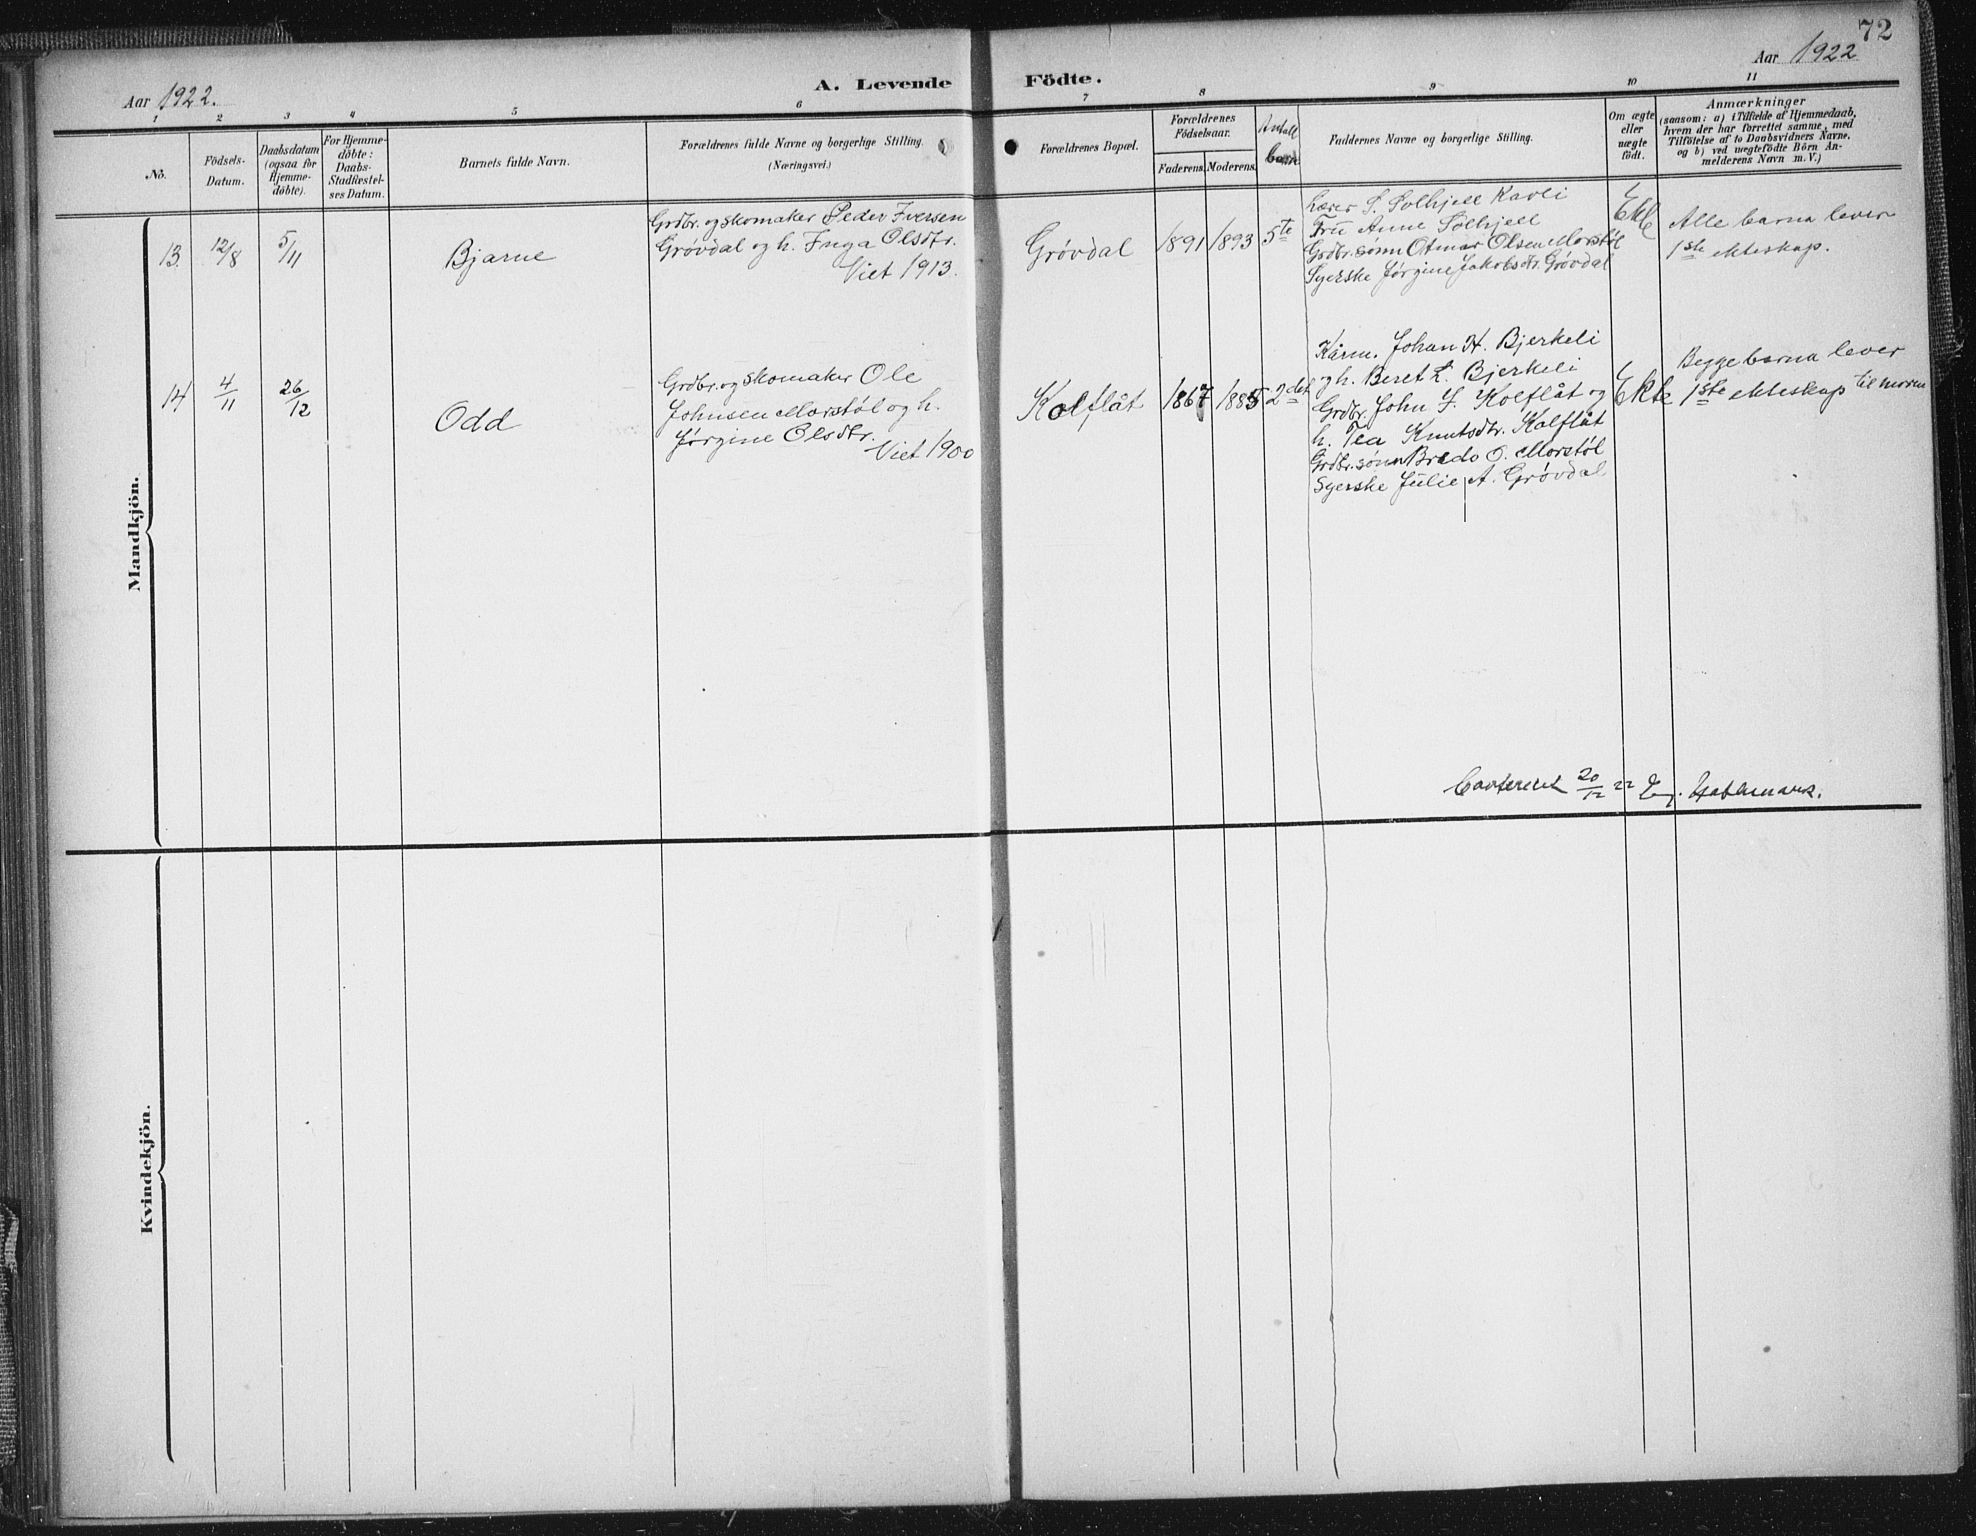 72
Aar 1922.
A. Levende Födte.
Aar 1922
1 2 3 4 5 6 7 8 9 10 11
No.
Födsels-
Datum.
Daabsdatum
(ogsaa for
Hjemme-
döbte).
For Hjemme-
döbte:
Daabs-
Stadfæstel-
ses Datum.
Barnets fulde Navn.
Forældrenes fulde Navne og borgerlige Stilling.
(Næringsvei.)
Forældrenes Bopæl.
Forældrenes
Födselsaar.
Faderens. Moderens.
Antall
barn
Faddernes Navne og borgerlige Stilling.
Om ægte
eller
uægte
födt.
Anmærkninger
(saasom: a) i Tilfælde af Hjemmedaab,
hvem der har forrettet samme, med
Tilföielse af to Daabsvidners Navne,
og b) ved uægtefödte Börn An-
melderens Navn m. V.)
Mandkjön.
13. 12/8 5/11 Bjarne
Grdbr. og skomaker Peder Iversen
Grøvdal og h. Inga Olsdtr.
Viet 1913.
Grøvdal 1891 1893 5te
Lærer S. Solhjell Kavli
Fru Anne Solhjell
Grdbr.sønn Otmar Olsen Morstøl
Syerske Jørgine Jakobsdtr. Grøvdal
Ekt
Alle barna lever
1ste ekteskap.
14 4/11 26/12 Odd
Grdbr. og skomaker Ole
Johnsen Morstøl og h.
Jørgine Olsdtr.
Viet 1900
Kolflåt 1867 1885 2det
Kårm. Johan H. Bjerkeli
og h. Beret L. Bjerkeli
Grdbr. John S. Kolflåt og
h. Tea Knutsdtr. Kolflåt
Grdbr.sønn Bredo O. Morstøl
Syerske Julie A. Grøvdal
Ekte
Begge barna lever
1ste ekteskap til moren
20/12 22
Kvindekjön.